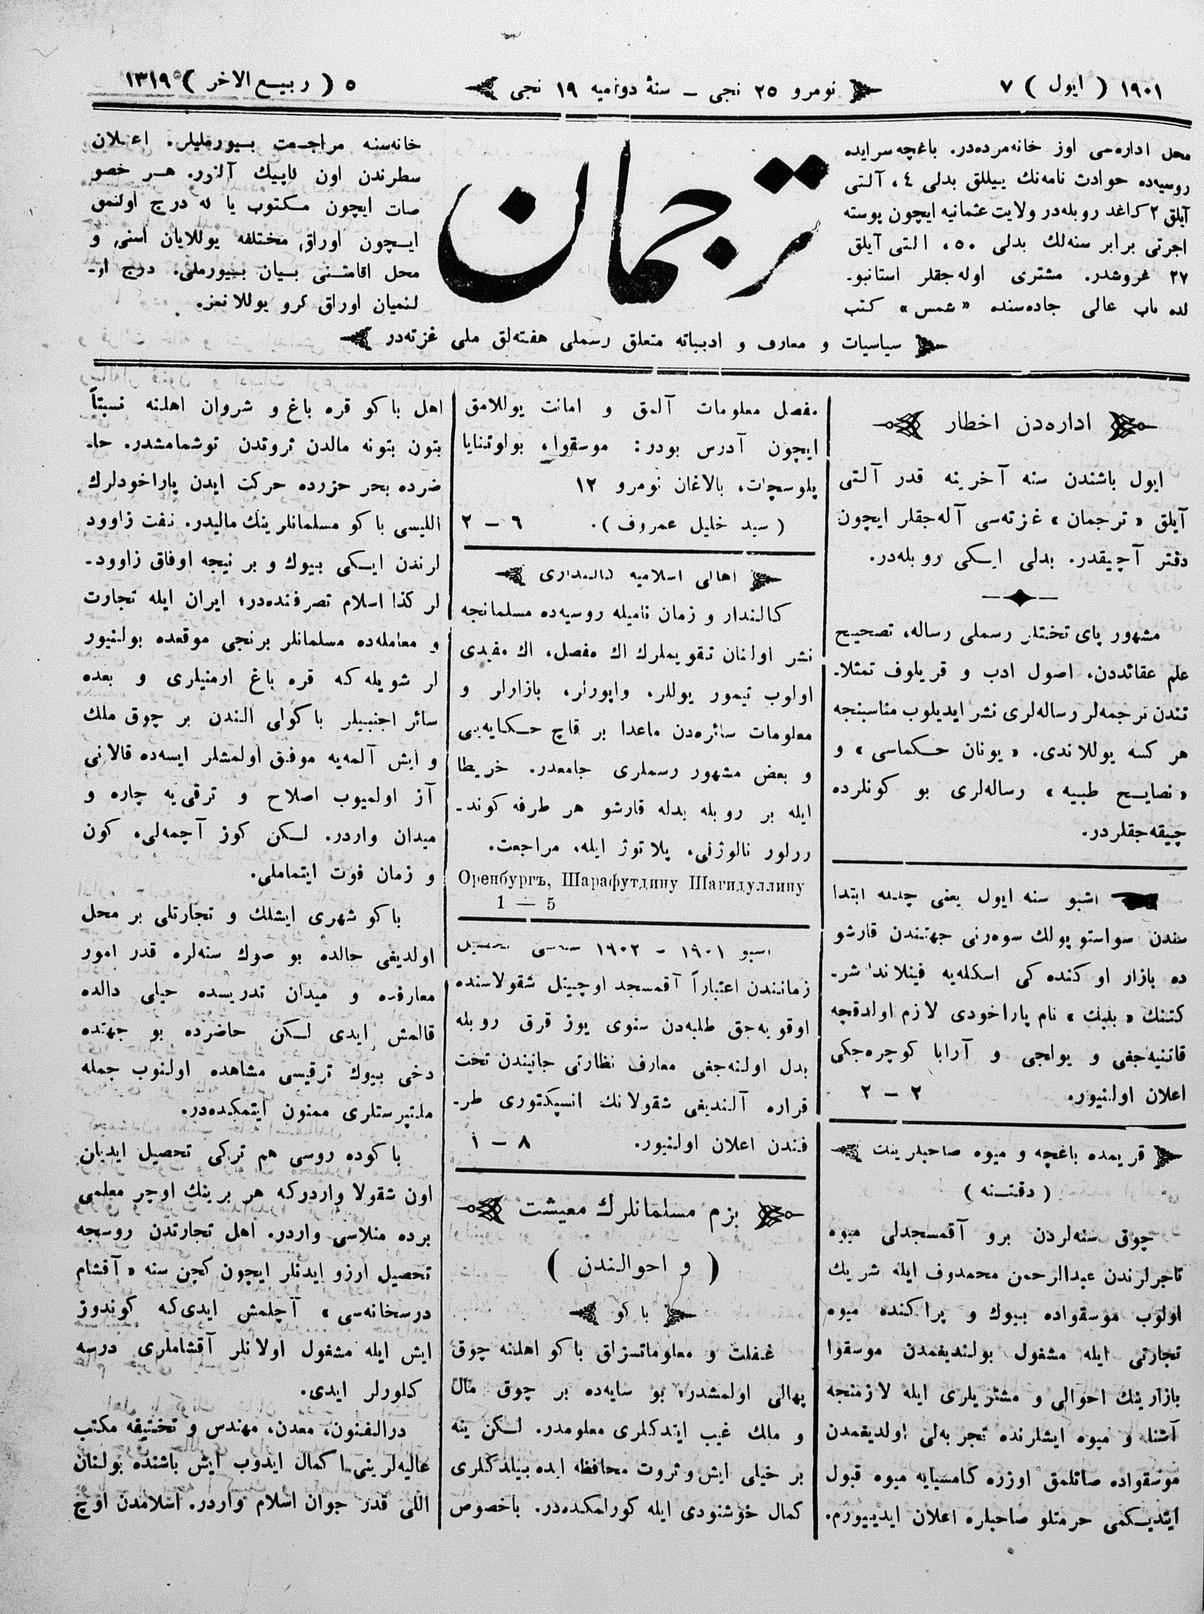 ١٩٠١ ( ايول ) ٧
نومرو ٢٥ نجى – سنۀ دوراميه ١٩ نجى
٥ ( ربيع الاخر ) ١٣١٩
محل اداره‌سى اوز خانه‌مزده‌در. باغچه سرايده
روسيه‌ده حوادث نامه‌نك ييللق بدلى ٤، آلتى
آيلق ٢ كاغد روبله‌در ولايت عثمانيه ايچون پوسته
اجرتى برابر سنه‌لك بدلى ٥٠، التى آيلق
٢٧ غروشدر. مشترى اوله‌جقلر استانبو-
لده باب عالى جاده‌سنده «شمس» كتب
ترجمان
خانه‌سنه مراجعت بيورمليلر. اعلان
سطرندن اون قاپيك آلنور. هر خصو
صات ايچون مكتوب يا نه درج اولنمق
ايچون اوراق مختلفه يوللايان اسنى و
محل اقامتنى بيان بيورملى. درج او-
لنميان اوراق كرو يوللانمز.
سياسيات و معارف و ادبياته متعلق رسملى هفته‌لق ملى غزته‌در
اداره‌دن اخطار
ايول باشندن سنه آخرينه قدر آلتى
آيلق «ترجمان» غزته‌سى آله‌جقلر ايچون
دفتر آچيقدر. بدلى ايكى روبله‌در.
مشهور پاى تختلر رسملى رساله، تصحيح
علم عقائددن، اصول ادب و قريلوف تمثلا-
تندن ترجمه‌لر رساله‌لرى نشر ايديلوب مناسبنجه
هر كسه يوللاندى. «يونان حكماسى» و
«نصايح طبيه» رساله‌لرى بو كونلرده
چيقه‌جقلردر.
اشبو سنه ايول يعنى ابتدا
سندن سواستوپولك سوه‌رنى جهتندن قارشو
ده بازار اوكنده كى اسكله‌يه فينلاند شر-
كتنك نام پاراخودى لازم اولدقچه
قاتنيه‌جغى و يولجى و آرابا كوچره‌جكى
اعلان اولنيور. ٢ – ٢
قريمده باغچه و ميوه صاحبلرينك
( دقتنه )
چوق سنه‌لردن برو آقمسجدلى ميوه
تاجرلرندن عبدالرحمن محمدوف ايله شريك
اولوب موسقواده بيوك و پراكنده ميوه
تجارتى ايله مشغول بولنديغمدن موسقوا
بازارينك احوالى و مشتريلرى ايله لازمنجه
آشنا و ميوه ايشلرنده تجربه‌لى اولديغمدن
موسقواده صاتلمق اوزره كامسيايه ميوه قبول
ايتديكمى حرمتلو صاحبلره اعلان ايدييورم.
مفصل معلومات آلمق و امانت يوللامق
ايچون آدرس بودر: موسقوا، بولوتنايا
پلوسچات، بالاغان نومرو ١٢
( سيد خليل عمروف ). ٦ – ٢
اهالى اسلاميه كالنداری
كالندار و زمان ناميله روسيه‌ده مسلمانجه
نشر اولنان تقويملرك اك مفصل، اك مفيدى
اولوب تيمور يوللر، واپورلر، بازارلر و
معلومات سائره‌دن ماعدا بر قاچ حكايه‌يى
و بعض مشهور رسملرى جامعدر. خريطا
ايله بر روبله بدله قارشو هر طرفه كوند-
ررلور نالوژنى، پلاتوژ ايله، مراجعت.
Оренбургъ, Шарафутдину Шагидуллину
1 — 5
اشبو ١٩٠١ – ١٩٠٢
زمانندن اعتباراً آقمسجد اوچيتل شقولاسنده
اوقويه‌جق طلبه‌دن سنوى يوز قرق روبله
بدل اولنه‌جغى معارف نظارتى جانبندن تحت
قراره آلنديغى شقولانك انسپكتورى طر-
فندن اعلان اولنيور. ٨ – ١
بزم مسلمانلرك معيشت
( و احوالندن )
باكو
غفلت و معلوماتسزلق باكو اهلنه چوق
پهالى اولمشدر؛ بو سايه‌ده بر چوق مال
و ملك غيب ايتدكلرى معلومدر. لكن ينه
بر خيلى ايش و ثروت محافظه ايده بيلدكلرى
كمال خوشنودى ايله كورلمكده‌در. باخصوص
اهل باكو قره باغ و شروان اهلنه نسبتاً
بتون بتونه مالدن ثروتدن توشمامشدر. حا-
ضرده بحر حزرده حركت ايدن پاراخودلرك
الليسى باكو مسلمانلرينك ماليدر. نفت زاوود
لرندن ايكى بيوك و بر نيجه اوفاق زاوود-
لر كذا اسلام تصرفنده‌در؛ ايران ايله تجارت
و معامله‌ده مسلمانلر برنجى موقعده بولنيور
لر شويله‌كه قره باغ ارمنيلرى و بعده
سائر اجنبيلر باكولى الندن بر چوق ملك
و ايش آلمه‌يه موفق اولمشلر ايسه‌ده قالانى
آز اولميوب اصلاح و ترقى‌يه چاره و
ميدان واردر. لكن كوز آچمه‌لى، كون
و زمان فوت ايتماملى.
باكو شهرى ايشلك و تجارتلى بر محل
اولديغى حالده بو صوك سنه‌لره قدر امور
معارفده و ميدان تدريسده خيلى دالده
قالمش ايدى لكن حاضرده بو جهتده
دخى بيوك ترقيسى مشاهده اولنوب جمله
ملتپرستلرى ممنون ايتمكده‌در.
باكوده روسى هم تركى تحصيل ايديلن
اون شقولا واردركه هر برينك اوچر معلمى
برده منلاسى واردر. اهل تجارتدن روسجه
تحصيل ارزو ايدنلر ايچون كچن سنه «آقشام
درسخانه‌سى» آچلمش ايدى‌كه كوندوز
ايش ايله مشغول اولانلر آقشاملرى درسه
كلورلر ايدى.
درالفنون، معدن، مهندس و تخنيقه مكتب
عاليه‌لرينى اكمال ايدوب ايش باشنده بولنان
اللى قدر جوان اسلام واردر. اسلامدن اوچ